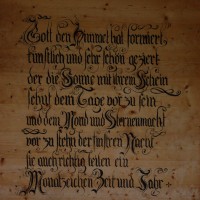 Gott den Himmel hat formiert,
künstlich und sehr schön geziert
der die Sonne mit ihrem Schein
sehyt dem Tage vor zu sein
und dem Mond und Sternenmacht
vor zu stehn der finstren Nacht
sie auch richtig teilen ein
Monatzeichen Zeit und Jahr